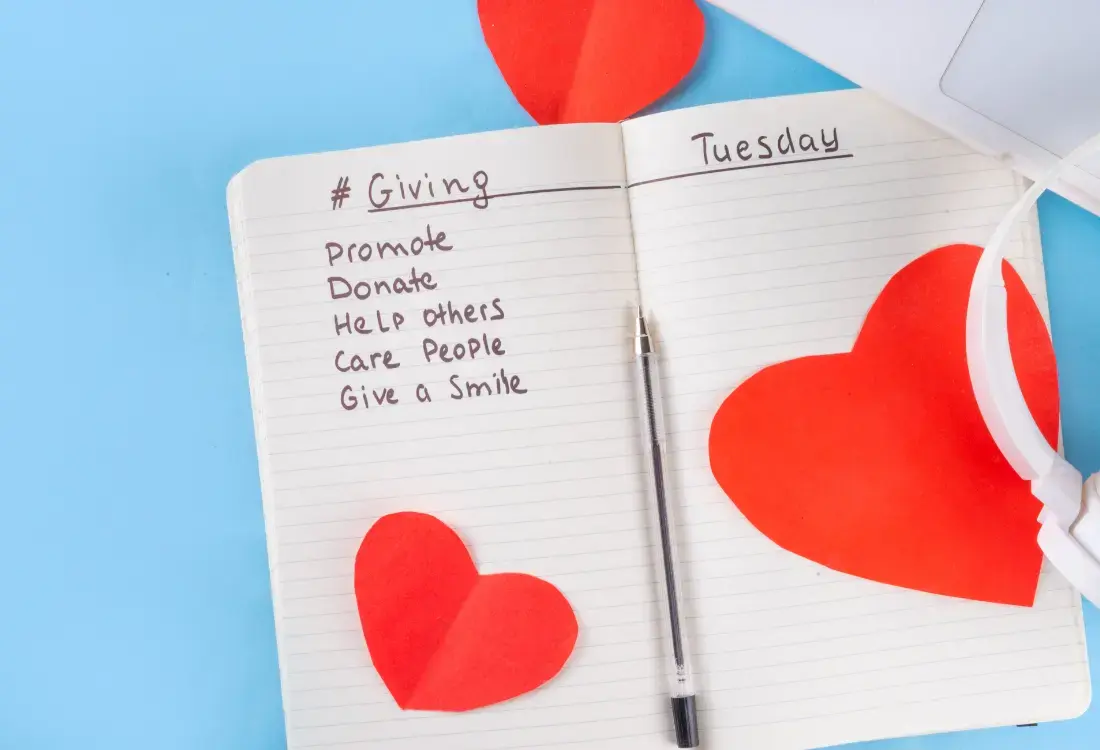 # Giving
Tuesday
Promote
Donate
Help others
Care People
Give a Smile